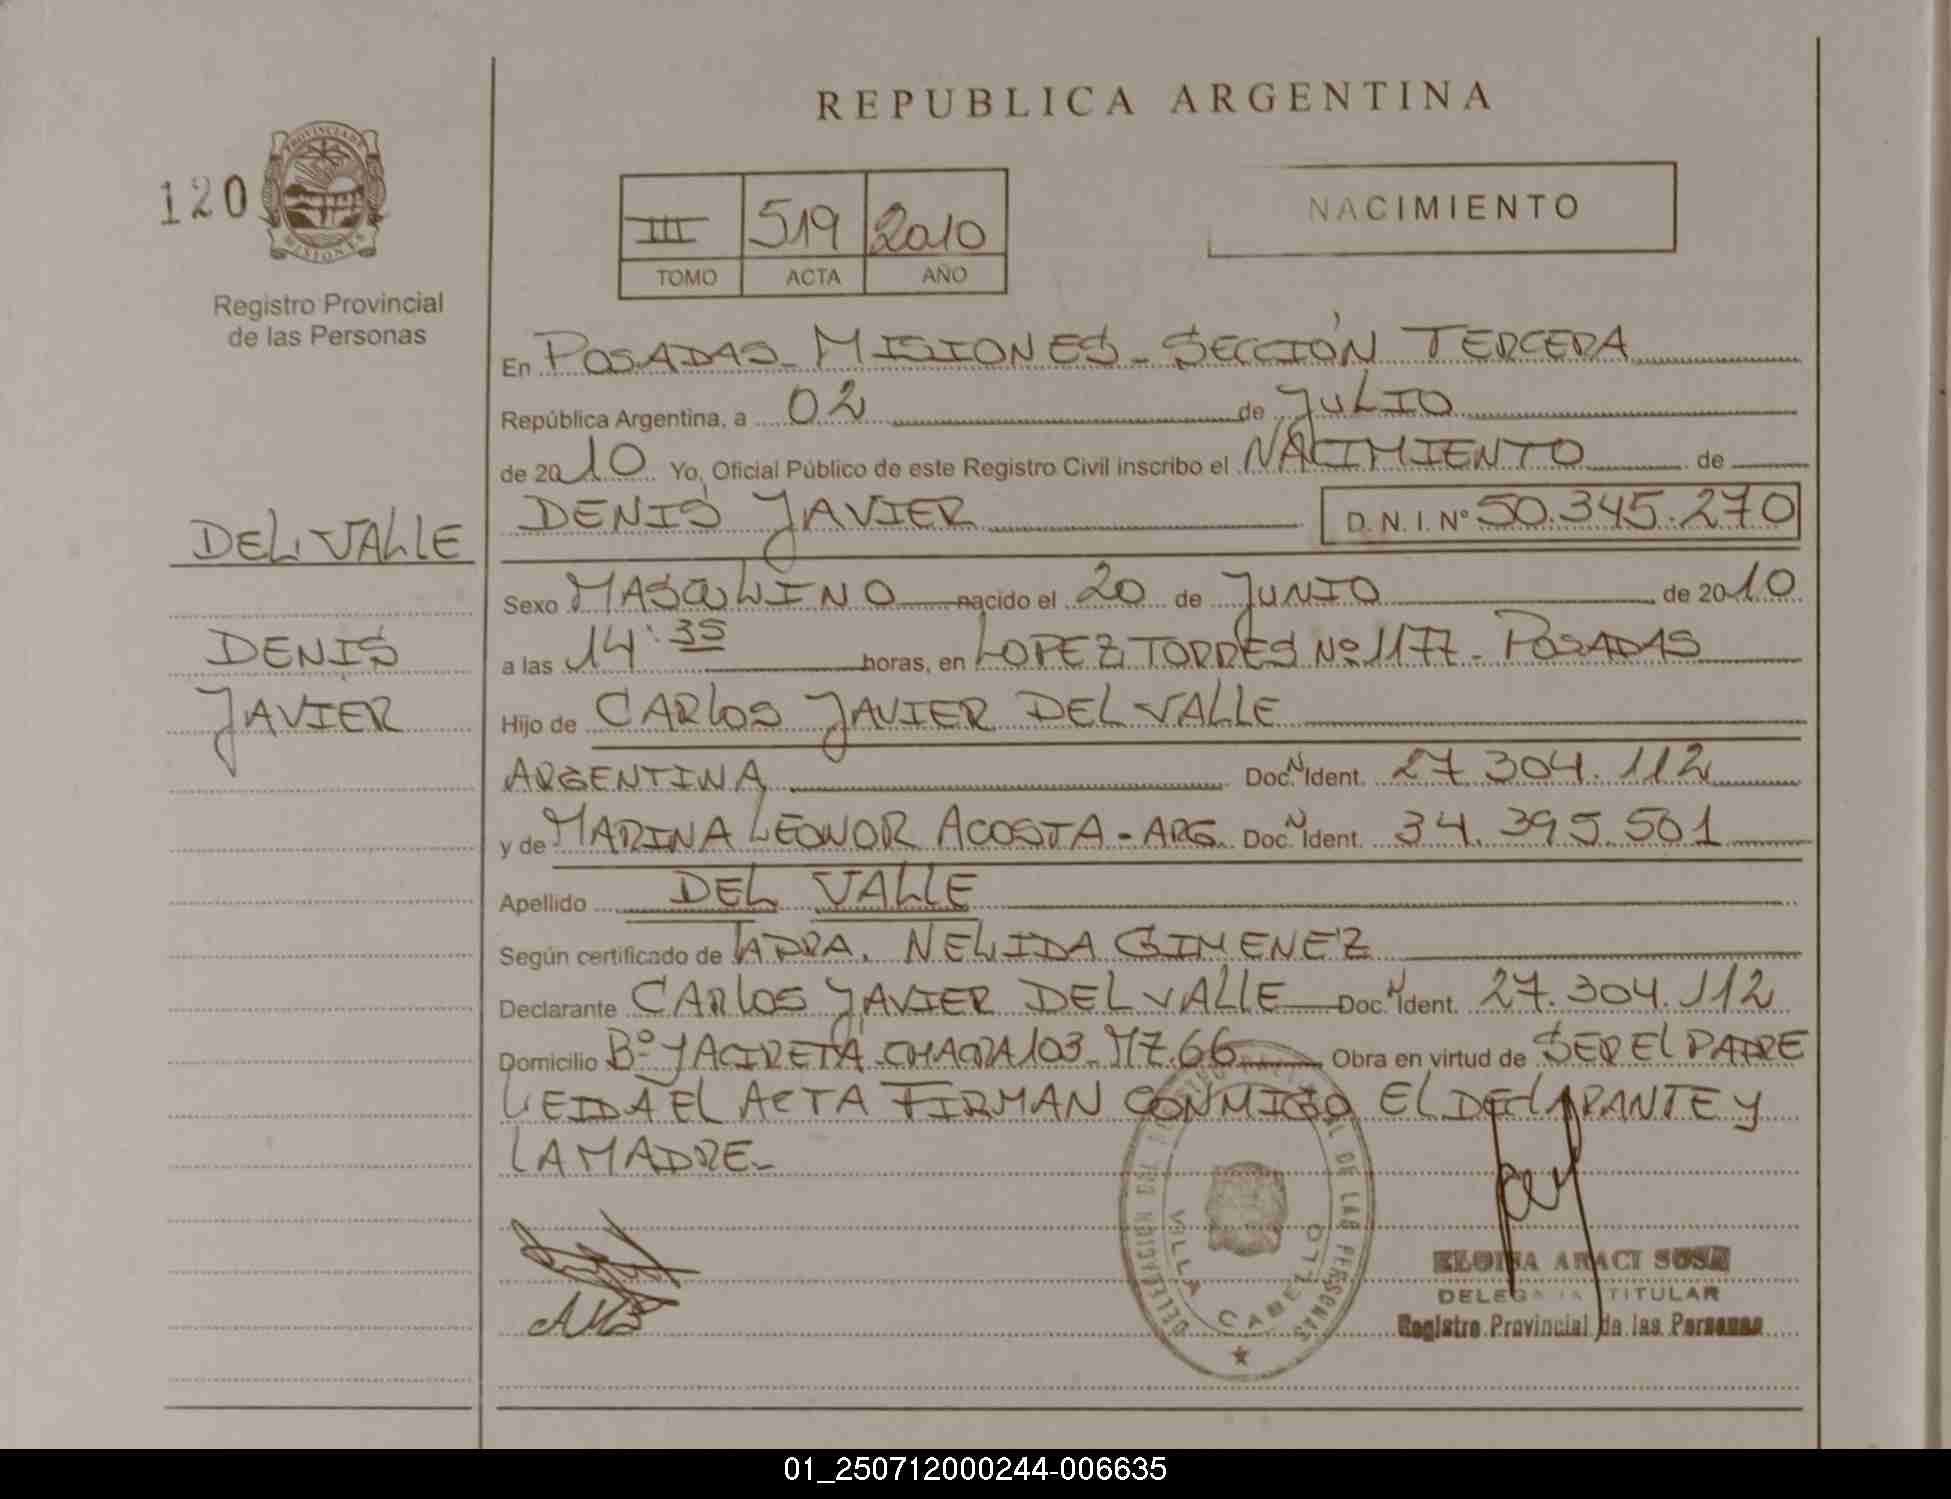 REPUBLICA ARGENTINA
120
PROVINCIA DE
MISIONES
Registro Provincial
de las Personas
III 519 2010
TOMO ACTA AÑO
NACIMIENTO
En POSADAS - MISIONES - SECCIÓN TERCERA
República Argentina, a 02 de JULIO
de 2010 Yo, Oficial Público de este Registro Civil inscribo el NACIMIENTO de
DENIS JAVIER D.N.I. Nº 50.345.270
DEL VALLE
DENIS
JAVIER
Sexo MASCULINO nacido el 20 de JUNIO de 2010
a las 14:35 horas, en LOPEZ TORRES Nº 1177 - POSADAS
Hijo de CARLOS JAVIER DEL VALLE
ARGENTINA Doc. N Ident. 27.304.112
y de MARINA LEONOR ACOSTA - ARG. Doc. N Ident. 34.395.501
Apellido DEL VALLE
Según certificado de NELIDA GIMENEZ
Declarante CARLOS JAVIER DEL VALLE Doc. N Ident. 27.304.112
Domicilio Bº YACIRETÁ - CHACRA 103 - MZ. 66 Obra en virtud de SER EL PADRE
LEIDA EL ACTA FIRMAN CONMIGO EL DECLARANTE Y
LA MADRE -
DELEGACION DEL REGISTRO PROVINCIAL DE LAS PERSONAS
VILLA CABELLO
ELOISA ARACI SOSA
DELEGADA TITULAR
Registro Provincial de las Personas
01_250712000244-006635